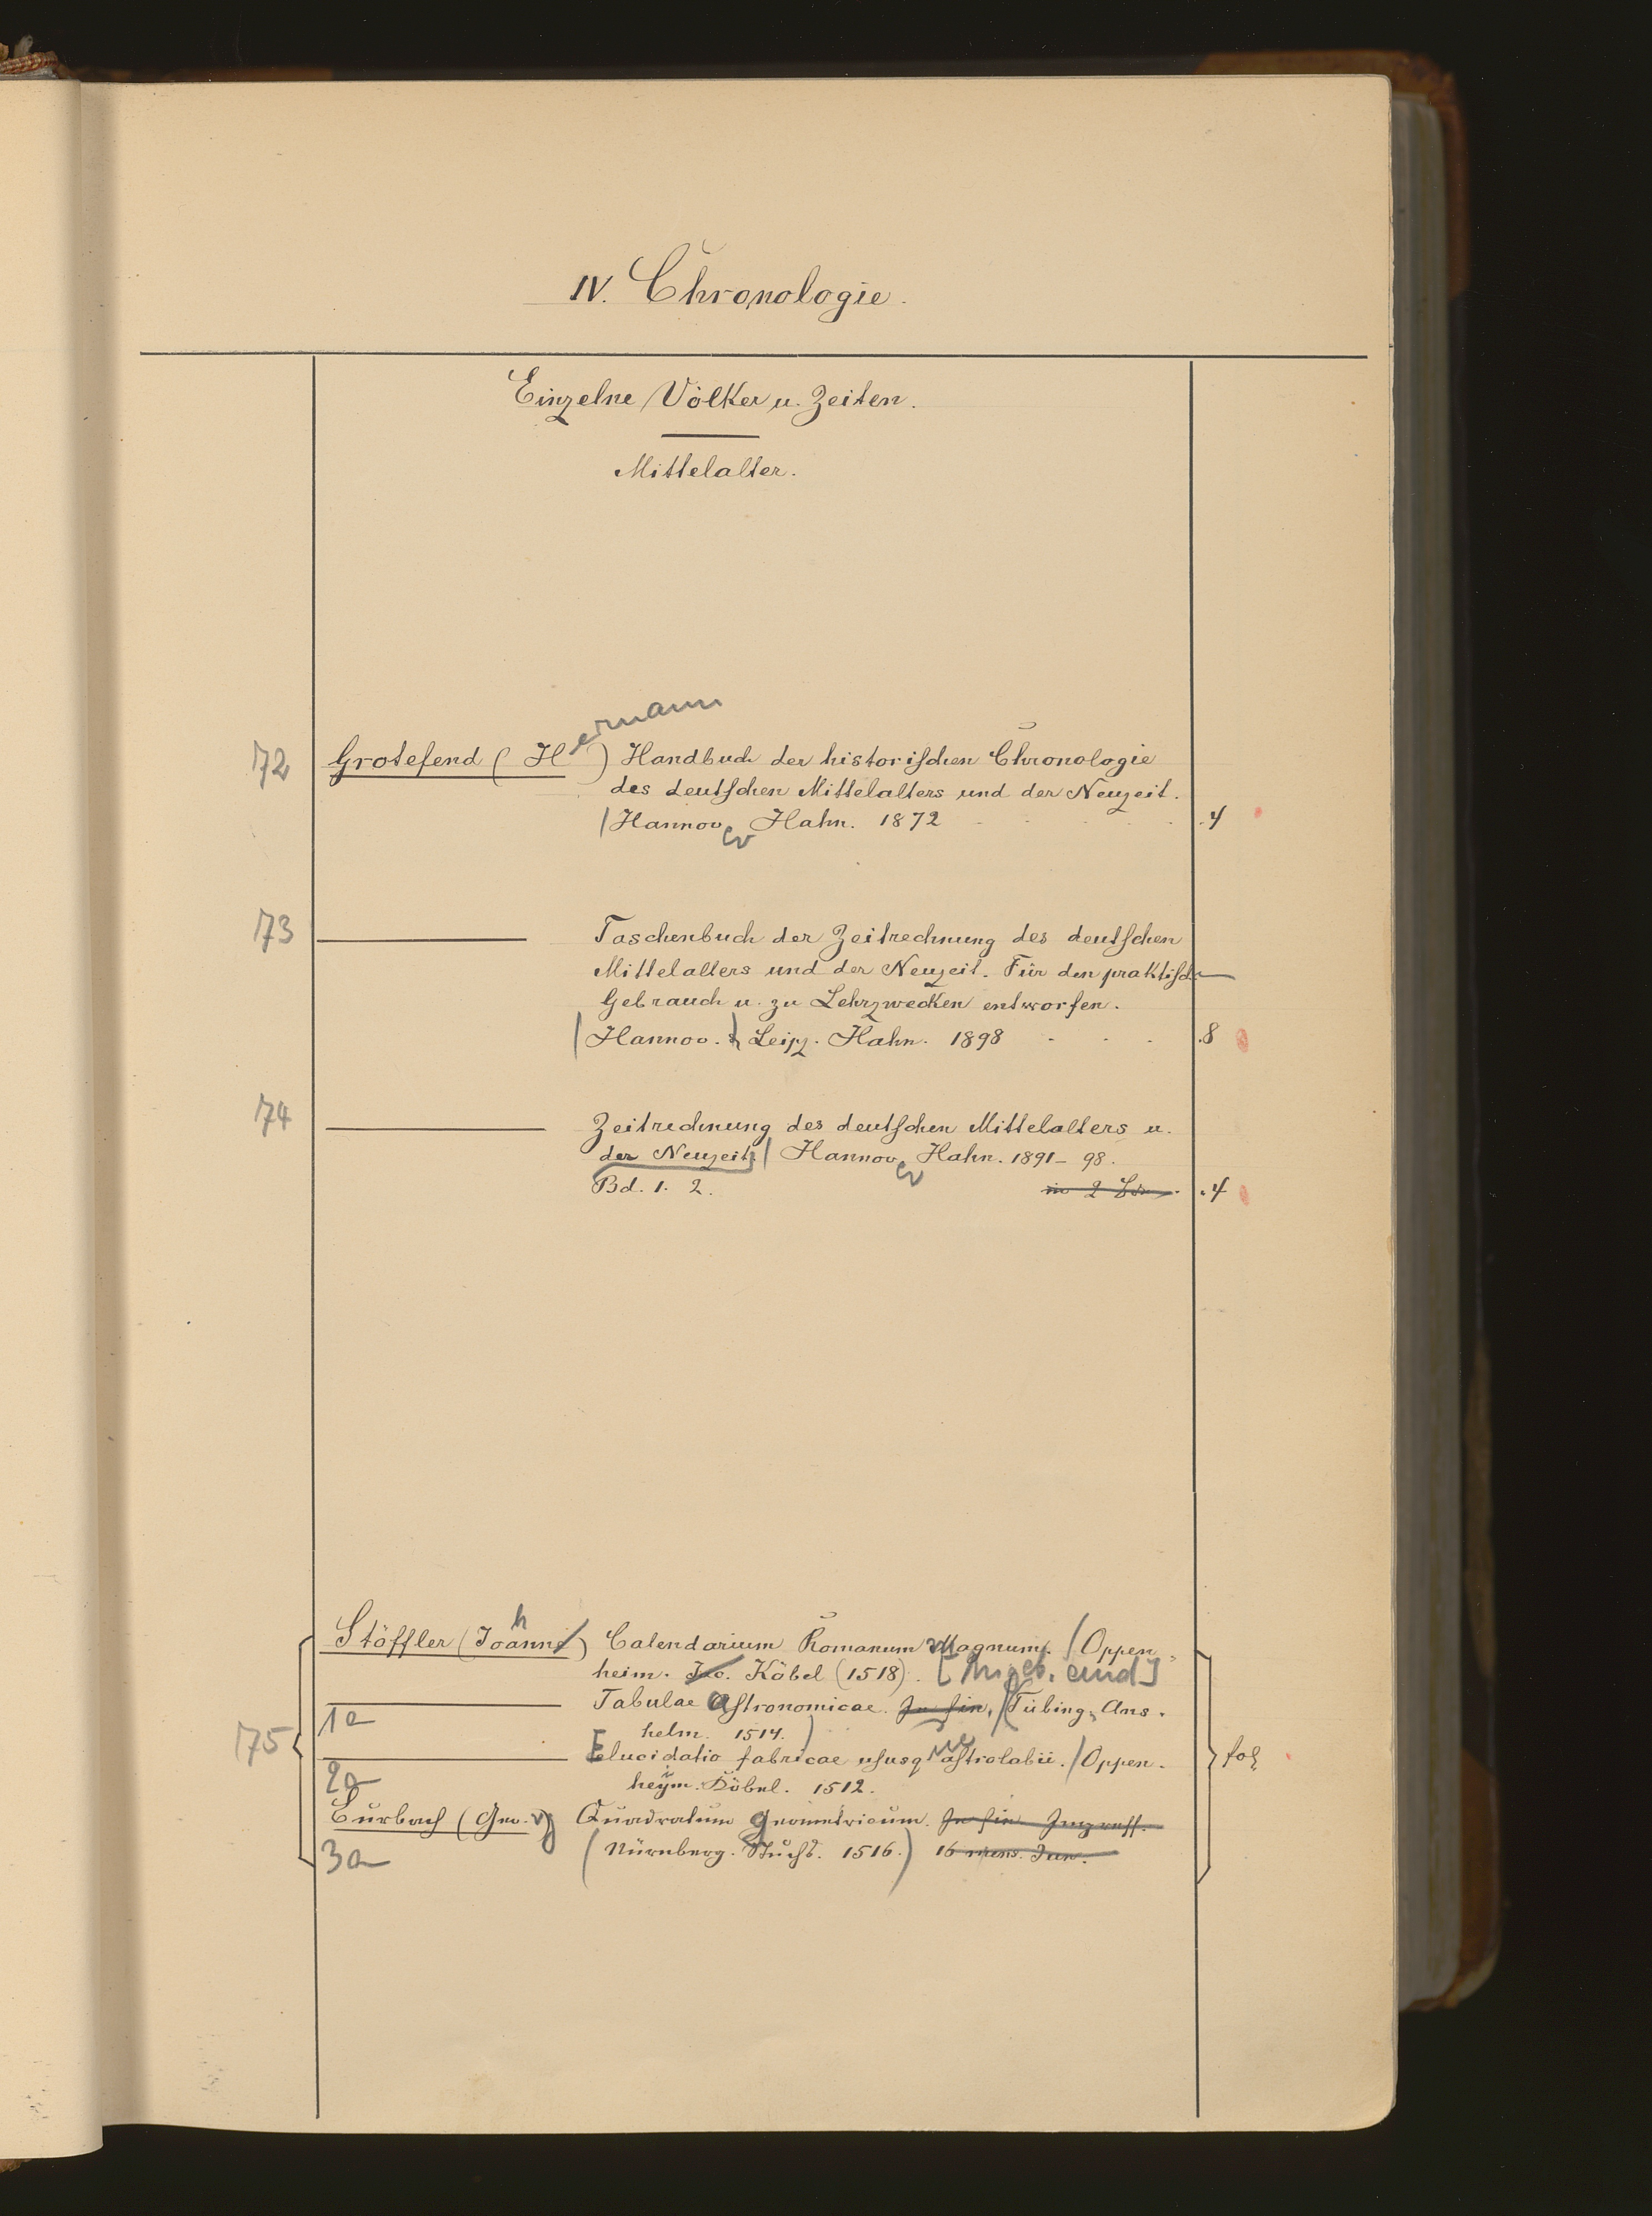 IV. Chronologie.
Einzelne Völker u. Zeiten.
Mittelalter.
72 Grotefend (Hermann) Handbuch der historischen Chronologie
des deutschen Mittelalters und der Neuzeit.
/Hannover Hahn. 1872 . 4
73 Taschenbuch der Zeitrechnung des deutschen
Mittelalters und der Neuzeit. Für den praktischen
Gebrauch u. zu Lehrzwecken entworfen.
/Hannov. Leipz. Hahn. 1898 . . . 8
74 Zeitrechnung des deutschen Mittelalters u.
der Neuzeit / Hannover Hahn. 1891-98.
Bd. 1. 2. in 2 . 4
Stöffler (Johann) Calendarium Romanum Magnum. /Oppen-
heim. Jac. Köbel (1518). [Angeb. sind]
Tabulae Astronomicae. In fin. /(Tübing. Ans-
1a helm. 1514.)
75 Elucidatio fabricae ususque astrolabii. /Oppen- fol
2a heym. Köbel. 1512.
Purbach (Geo. v) Quadratum geometricum. In fin Impress.
3a (Nürnberg. Stuchs. 1516.) 16 mens. Jan.